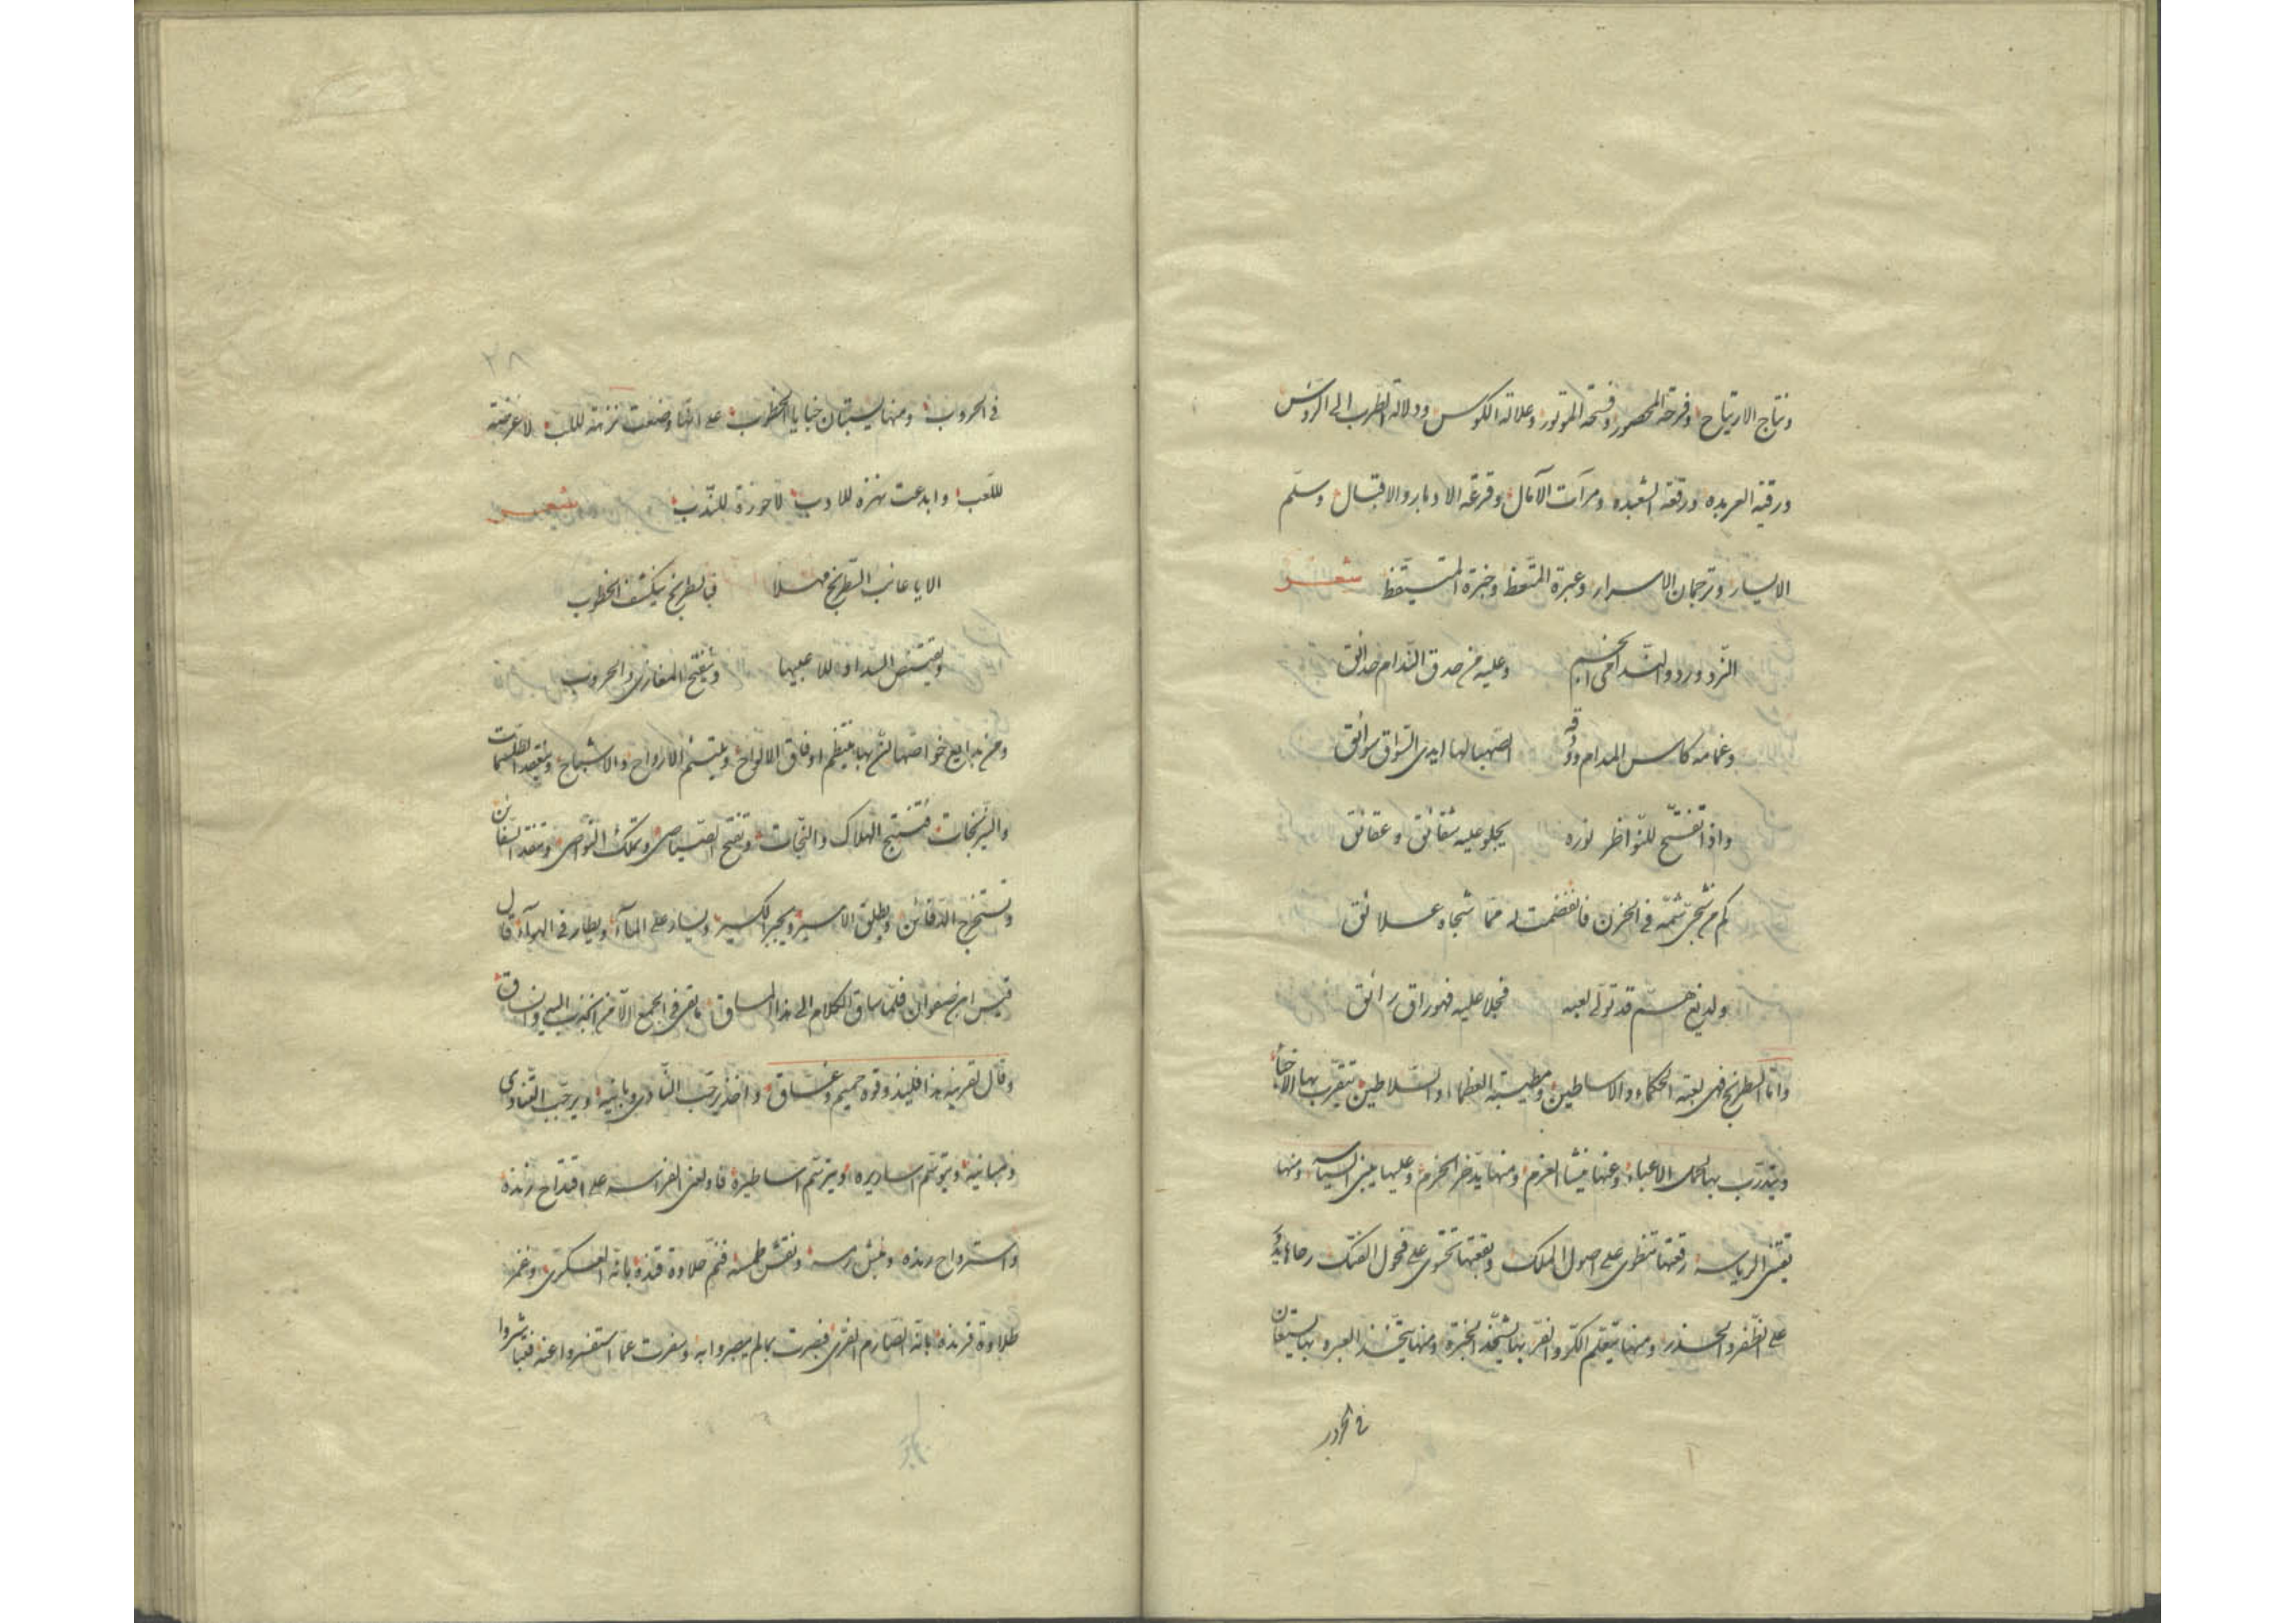 ونتاج الارتياح وفرحة المحصور وفسحة الموتور وعلالة الكوس ودلالة الطرب الى الروس
ورقية العربده ورقعة الشعبده ومرآت الآمال وقرعة الادبار والاقبال وسلم
الايسار وترجمان الاسرار وعبرة المتعظ وخبرة المتيقظ شعر
النرد ورد والندامى انجم وعليه من حدق الندام حدائق
وغمامه كاس المدام ودوقه الصهبا لها ايدى السواق سوائق
واذا تفتح للنواظر نوره يجلو عليه شقائق وعقائق
كم من شجى شمه فى الحزن فانفصمت له مما شجاه علائق
ولديغ هم قد تولى لعبه فجلا عليه فهو راق رائق
واما الشطرنج فهى لعبة الحكماء والاساطين ومطيبة العظماء والسلاطين تتقرب بها الاحباء
ويتدرب بها لحمل الاعباء وعنها ينشا العزم ومنها يدخر الحزم وعليها يبنى السياسه ومنها
تقتنى الرياسه رقعتها تنطوى على اصول الملك وبقعتها تحتوى على فحول الفتك رحاها يد
على الظفر والحذر ومنها يتعلم الكر والفر بها يشحذ الخبرة ومنها يتخذ العبره بها يستعان
فى الحروب
فى الحروب ومنها يستبان خبايا الخطوب على انها وضعت نزهة للب لا عرضة
للعب وابدعت نهزه للادب لا حوزة للندب شعر
الا يا عائب الشطرنج مهلا فبالشطرنج ينكشف الخطوب
ويقتنص السداد للاعبيها ويفتح المغازى والحروب
ومن بدايع خواصها ان بها ينتظم اوفاق الالواح ويلتئم الارواح والاشباح وينعقد الطلسمات
والنيرنجات فتنتج الهلاك والنجات وتفتح الصياصى وتملك النواصى وتنقد السفائن
وتستخرج الدفائن ويطلق الاسير ويجبر الكسير ويسار على المآء ويطار فى الهوآء قال
قيس ابن صفوان فلما ساق الكلام الى هذا المساق ما بقى فى الجمع الا من انجذب اليه وانساق
وقال لقرينه هذا فليذوقوه حميم وغساق واخذ يرحب النادى وبانيه ويرجب
ومبانيه ويتوسم اساديره ويترسم اساطيره فاولعنى الفراسه على اقتداح زنده
واسترواح رنده ونبش رمسه ونقش طمسه فنم حلاوة قنده بانه العسكرى وغمز
طلاوة فرنده بانه الصارم الفرى فبصرت بما لم يبصروا به وسفرت عما استفسروا عنه فتباشروا